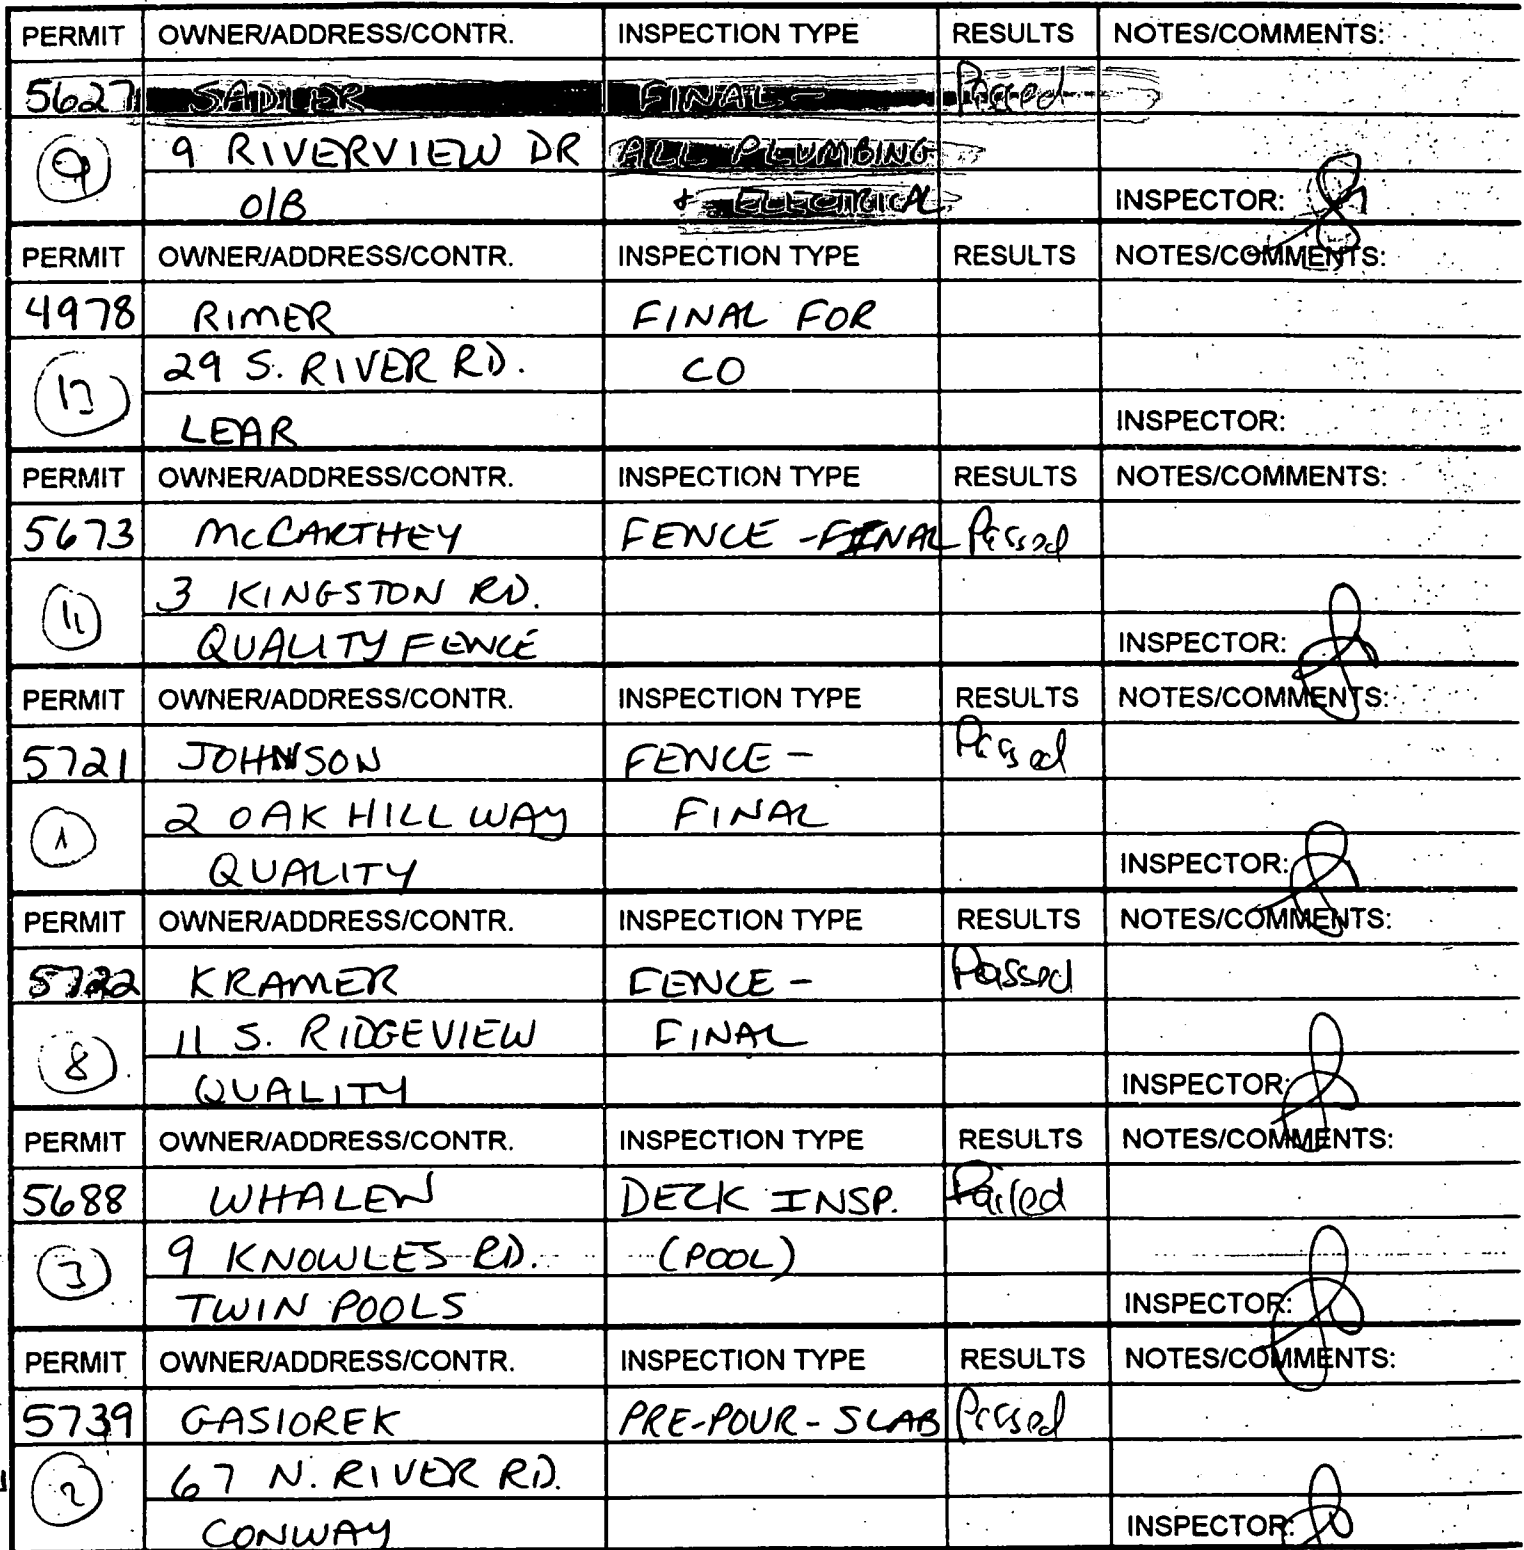 PERMIT OWNER/ADDRESS/CONTR. INSPECTION TYPE RESULTS NOTES/COMMENTS:
5627 SADLER FINAL - Passed
9 9 RIVERVIEW DR ALL PLUMBING
O/B + ELECTRICAL INSPECTOR:
PERMIT OWNER/ADDRESS/CONTR. INSPECTION TYPE RESULTS NOTES/COMMENTS:
4978 RIMER FINAL FOR
29 S. RIVER RD. CO
LEAR INSPECTOR:
PERMIT OWNER/ADDRESS/CONTR. INSPECTION TYPE RESULTS NOTES/COMMENTS:
5673 McCARTHEY FENCE - FINAL Passed
3 KINGSTON RD.
QUALITY FENCE INSPECTOR:
PERMIT OWNER/ADDRESS/CONTR. INSPECTION TYPE RESULTS NOTES/COMMENTS:
5721 JOHNSON FENCE - Passed
1 2 OAK HILL WAY FINAL
QUALITY INSPECTOR:
PERMIT OWNER/ADDRESS/CONTR. INSPECTION TYPE RESULTS NOTES/COMMENTS:
5722 KRAMER FENCE - Passed
8 11 S. RIDGEVIEW FINAL
QUALITY INSPECTOR:
PERMIT OWNER/ADDRESS/CONTR. INSPECTION TYPE RESULTS NOTES/COMMENTS:
5688 WHALEN DECK INSP. Failed
3 9 KNOWLES RD. (POOL)
TWIN POOLS INSPECTOR:
PERMIT OWNER/ADDRESS/CONTR. INSPECTION TYPE RESULTS NOTES/COMMENTS:
5739 GASIOREK PRE-POUR - SLAB Passed
2 67 N. RIVER RD.
CONWAY INSPECTOR: